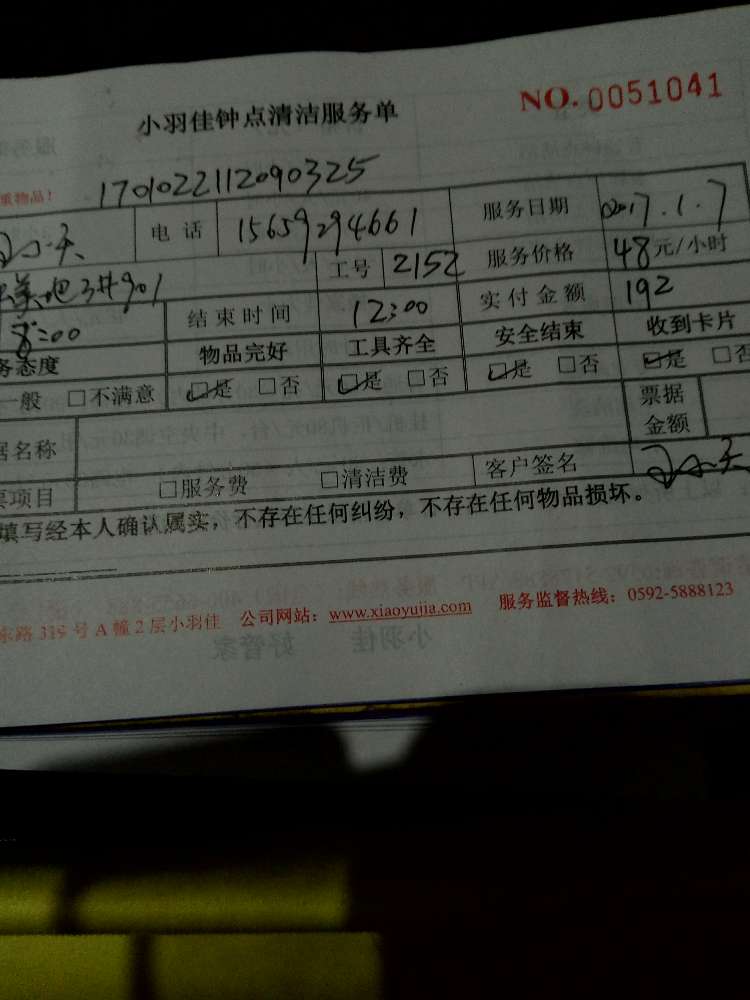 小羽佳钟点清洁服务单 NO. 0051041
重物品! 170102211209 0325
电话 15659294661 服务日期 2017.1.7
3#901 工号 2152 服务价格 48元/小时
8:00 结束时间 12:00 实付金额 192
务态度 物品完好 工具齐全 安全结束 收到卡片
一般 □不满意 ☑是 □否 ☑是 □否 ☑是 □否 ☑是 □否
据名称 票据金额
票项目 □服务费 □清洁费 客户签名
填写经本人确认属实，不存在任何纠纷，不存在任何物品损坏。
东路319号A幢2层小羽佳 公司网站：www.xiaoyujia.com 服务监督热线：0592-5888123